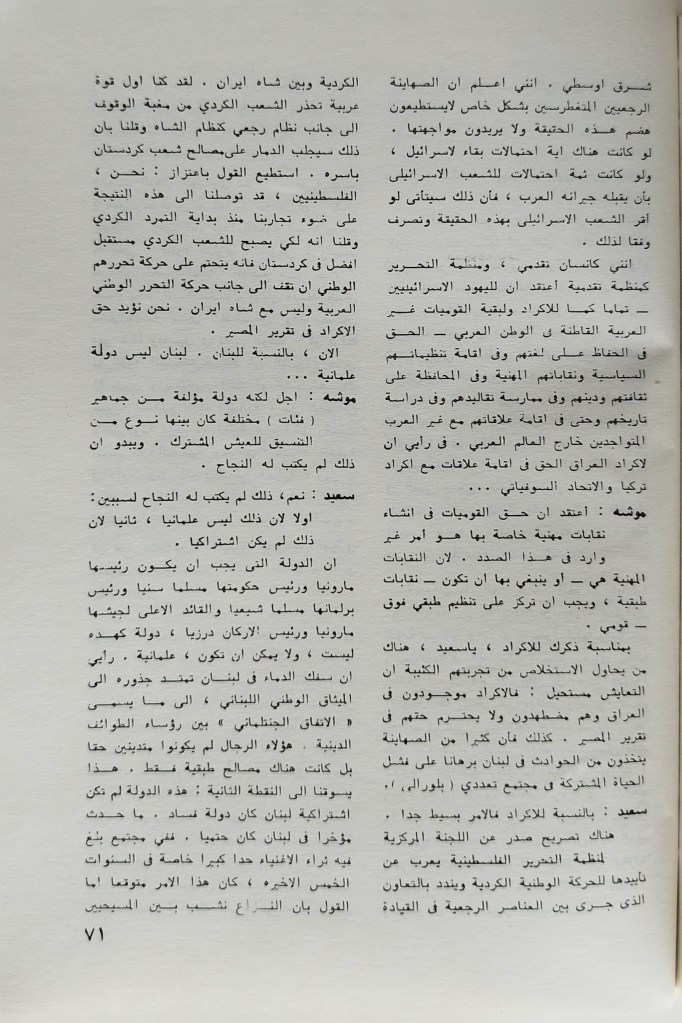 شرق اوسطي . انني اعلم ان الصهاينة
الرجعيين المتغطرسين بشكل خاص لايستطيعون
هضم هذه الحقيقة ولا يريدون مواجهتها .
لو كانت هناك اية احتمالات بقاء لاسرائيل ،
ولو كانت ثمة احتمالات للشعب الاسرائيلى
بأن يقبله جيرانه العرب ، فأن ذلك سيتأتى لو
أقر الشعب الاسرائيلى بهذه الحقيقة وتصرف
وفقا لذلك .
انني كانسان تقدمي ، ومنظمة التحرير
كمنظمة تقدمية أعتقد ان لليهود الاسرائيليين
ــ تماما كما للاكراد ولبقية القوميات غير
العربية القاطنة فى الوطن العربي ــ الحق
فى الحفاظ على لغتهم وفى اقامة تنظيماتهم
السياسية ونقاباتهم المهنية وفى المحافظة على
ثقافتهم ودينهم وفى ممارسة تقاليدهم وفى دراسة
تاريخهم وحتى فى اقامة علاقاتهم مع غير العرب
المتواجدين خارج العالم العربي . فى رأيي ان
لاكراد العراق الحق فى اقامة علاقات مع اكراد
تركيا والاتحاد السوفياتي ...
موشه : أعتقد ان حق القوميات فى انشاء
نقابات مهنية خاصة بها هو أمر غير
وارد فى هذا الصدد . لان النقابات
المهنية هي ــ أو ينبغي بها ان تكون ــ نقابات
طبقية ، ويجب ان تركز على تنظيم طبقي فوق
ــ قومي .
بمناسبة ذكرك للاكراد ، ياسعيد ، هناك
من يحاول الاستخلاص من تجربتهم الكئيبة ان
التعايش مستحيل : فالاكراد موجودون فى
العراق وهم مضطهدون ولا يحترم حقهم فى
تقرير المصير . كذلك فأن كثيرا من الصهاينة
يتخذون من الحوادث فى لبنان برهانا على فشل
الحياة المشتركة فى مجتمع تعددي ( بلورالي ).
سعيد : بالنسبة للاكراد فالامر بسيط جدا .
هناك تصريح صدر عن اللجنة المركزية
لمنظمة التحرير الفلسطينية يعرب عن
تأييدها للحركة الوطنية الكردية ويندد بالتعاون
الذى جرى بين العناصر الرجعية فى القيادة
الكردية وبين شاه ايران . لقد كنا اول قوة
عربية تحذر الشعب الكردي من مغبة الوقوف
الى جانب نظام رجعي كنظام الشاه وقلنا بان
ذلك سيجلب الدمار على مصالح شعب كردستان
باسره . استطيع القول باعتزاز : نحن ،
الفلسطينيين ، قد توصلنا الى هذه النتيجة
على ضوء تجاربنا منذ بداية التمرد الكردي
وقلنا انه لكي يصبح للشعب الكردي مستقبل
افضل فى كردستان فانه يتحتم على حركة تحررهم
الوطني ان تقف الى جانب حركة التحرر الوطني
العربية وليس مع شاه ايران . نحن نؤيد حق
الاكراد فى تقرير المصير .
الان ، بالنسبة للبنان . لبنان ليس دولة
علمانية ...
موشه : اجل لكنه دولة مؤلفة من جماهير
( فئات ) مختلفة كان بينها نوع من
التنسيق للعيش المشترك . ويبدو ان
ذلك لم يكتب له النجاح .
سعيد : نعم، ذلك لم يكتب له النجاح لسببين:
اولا لان ذلك ليس علمانيا ، ثانيا لان
ذلك لم يكن اشتراكيا .
ان الدولة التى يجب ان يكون رئيسها
مارونيا ورئيس حكومتها مسلما سنيا ورئيس
برلمانها مسلما شيعيا والقائد الاعلى لجيشها
مارونيا ورئيس الاركان درزيا ، دولة كهذه
ليست ، ولا يمكن ان تكون ، علمانية . رأيي
ان سفك الدماء فى لبنان تمتد جذوره الى
الميثاق الوطني اللبناني ، الى ما يسمى
« الاتفاق الجنتلماني » بين رؤساء الطوائف
الدينية . هؤلاء الرجال لم يكونوا متدينين حقا
بل كانت هناك مصالح طبقية فقط . هذا
يسوقنا الى النقطة الثانية : هذه الدولة لم تكن
اشتراكية لبنان كان دولة فساد . ما حدث
مؤخرا فى لبنان كان حتميا . ففي مجتمع بلغ
فيه ثراء الاغنياء حدا كبيرا خاصة فى السنوات
الخمس الاخيره ، كان هذا الامر متوقعا اما
القول بان النزاع نشب بين المسيحيين
٧١